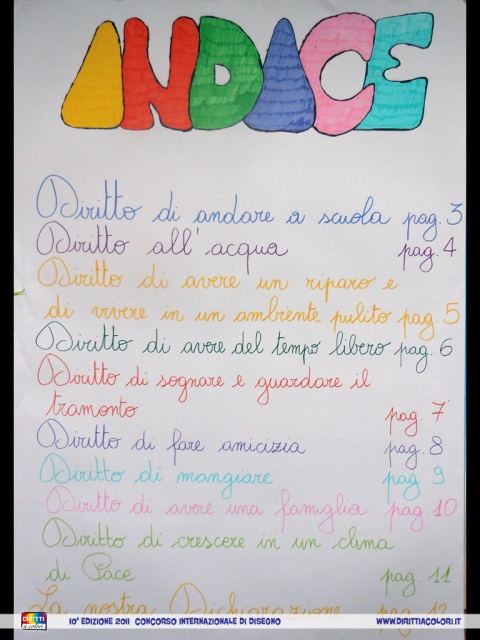 ANDACE
Diritto di andare a scuola pag. 3
Diritto all'acqua pag. 4
Diritto di avere un riparo e
di vivere in un ambiente pulito pag. 5
Diritto di avere del tempo libero pag. 6
Diritto di sognare e guardare il
tramonto pag. 7
Diritto di fare amicizia pag. 8
Diritto di mangiare pag. 9
Diritto di avere una famiglia pag. 10
Diritto di crescere in un clima
di Pace pag. 11
La nostra Dichiarazione pag. 12
DIRITTI a colori 10ª EDIZIONE 2011 CONCORSO INTERNAZIONALE DI DISEGNO WWW.DIRITTIACOLORI.IT